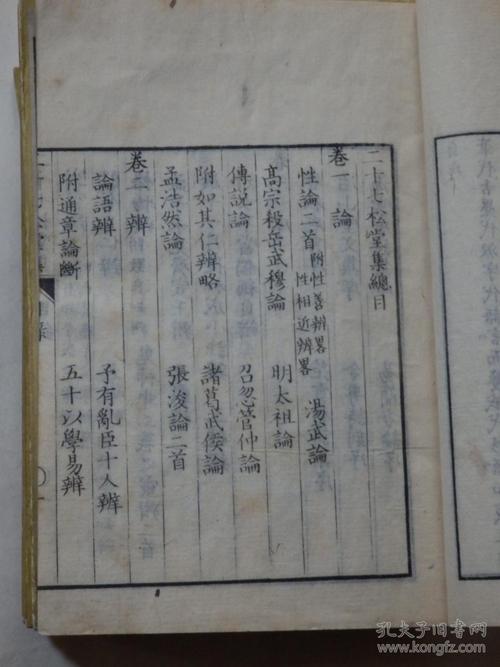 二十七松堂集總目
卷一　論
性論二首　附性善辨畧　性相近辨畧　湯武論
高宗殺岳武穆論　明太祖論
傳說論　召忽管仲論
附如其仁辨略　諸葛武侯論
孟浩然論　張浚論二首
卷二　辨
論語辨　予有亂臣十人辨
附通章論斷　五十以學易辨
孔夫子旧书网
kongfz.com